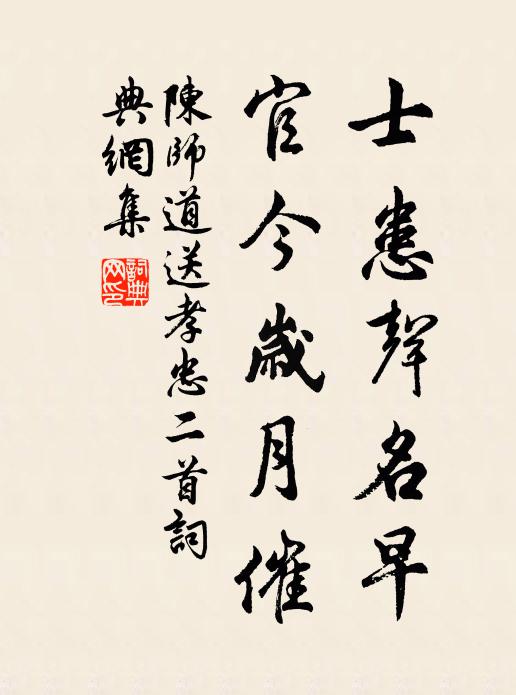 士患聲名早
官今歲月催
陳師道送孝忠二首詞
典網集
詞典
网印